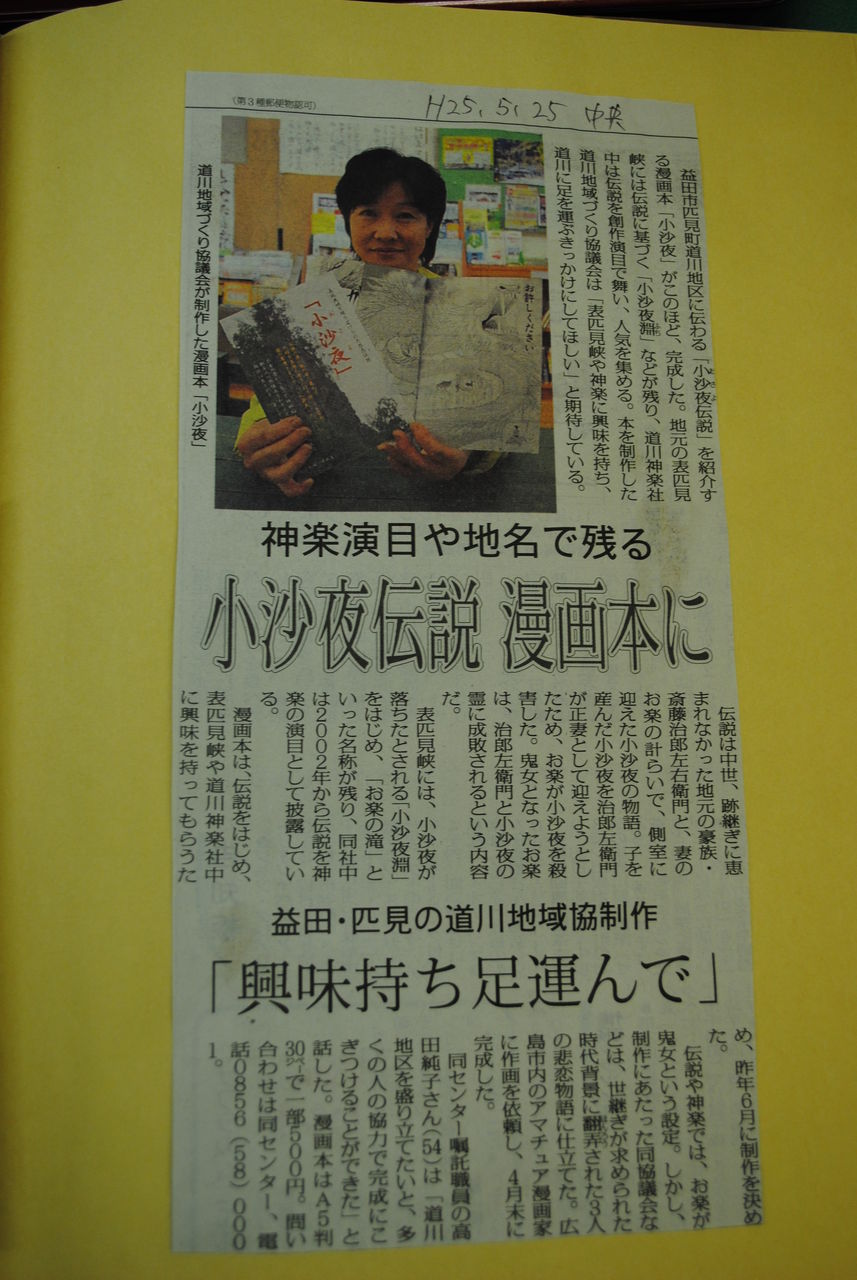 （第３種郵便物認可）
H25.5.25 中央
益田市匹見町道川地区に伝わる「小沙夜伝説」を紹介す
る漫画本「小沙夜」がこのほど、完成した。地元の表匹見
峡には伝説に基づく「小沙夜淵」などが残り、道川神楽社
中は伝説を創作演目で舞い、人気を集める。本を制作した
道川地域づくり協議会は「表匹見峡や神楽に興味を持ち、
道川に足を運ぶきっかけにしてほしい」と期待している。
お許しください
「小沙夜」
道川地域づくり協議会が制作した漫画本「小沙夜」
神楽演目や地名で残る
小沙夜伝説 漫画本に
伝説は中世、跡継ぎに恵
まれなかった地元の豪族・
斎藤治郎左右衛門と、妻の
お楽の計らいで、側室に
迎えた小沙夜の物語。子を
産んだ小沙夜を治郎左衛門
が正妻として迎えようとし
たため、お楽が小沙夜を殺
害した。鬼女となったお楽
は、治郎左衛門と小沙夜の
霊に成敗されるという内容
だ。
表匹見峡には、小沙夜が
落ちたとされる「小沙夜淵」
をはじめ、「お楽の滝」と
いった名称が残り、同社中
は２００２年から伝説を神
楽の演目として披露してい
る。
漫画本は、伝説をはじめ、
表匹見峡や道川神楽社中
に興味を持ってもらうた
益田・匹見の道川地域協制作
「興味持ち足運んで」
め、昨年６月に制作を決め
た。
伝説や神楽では、お楽が
鬼女という設定。しかし、
制作にあたった同協議会な
どは、世継ぎが求められた
時代背景に翻弄された３人
の悲恋物語に仕立てた。広
島市内のアマチュア漫画家
に作画を依頼し、４月末に
完成した。
同センター嘱託職員の高
田純子さん（５４）は「道川
地区を盛り立てたいと、多
くの人の協力で完成にこ
ぎつけることができた」と
話した。漫画本はＡ５判
30㌻で一部５００円。問い
合わせは同センター、電
話０８５６（５８）０００
１。